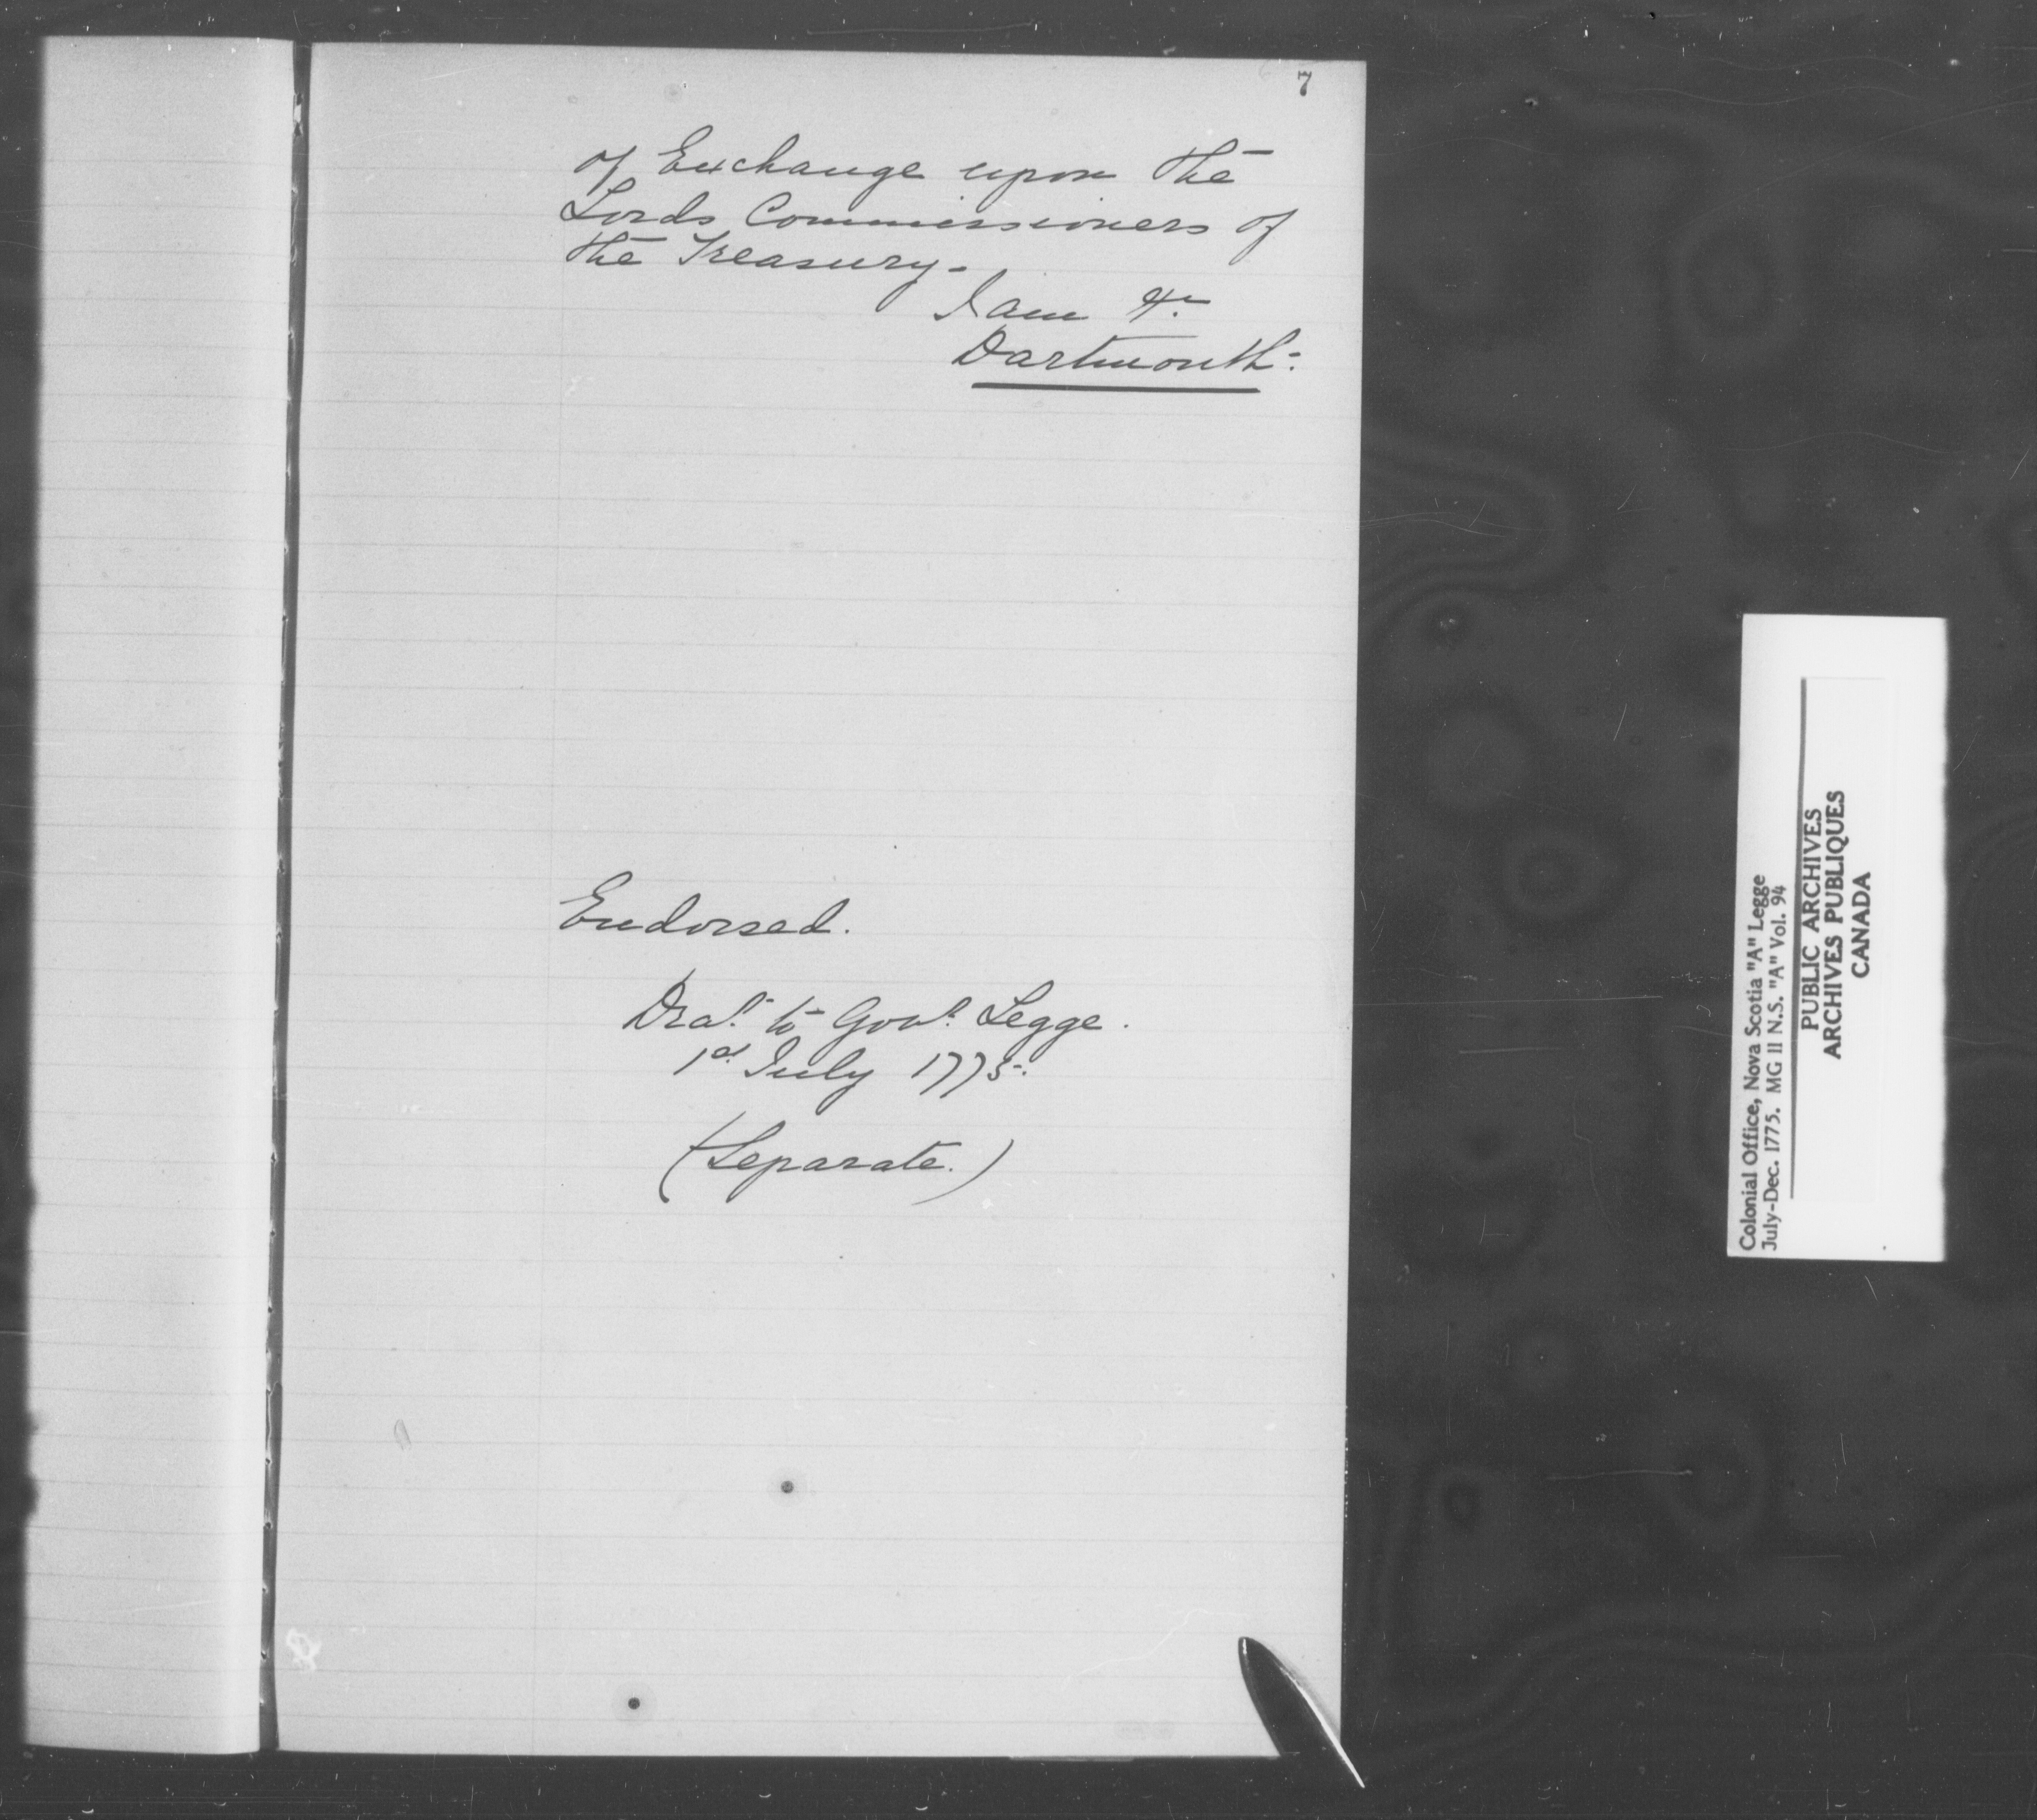 7
of Exchange upon the
Lords Commissioners of
the Treasury.
I am &c.
Dartmouth.
Endorsed.
Dra.t to Gov.r Legge.
1st July 1775.
(Separate.)
Colonial Office, Nova Scotia "A" Legge
July-Dec. 1775. MG 11 N.S. "A" Vol. 94
PUBLIC ARCHIVES
ARCHIVES PUBLIQUES
CANADA